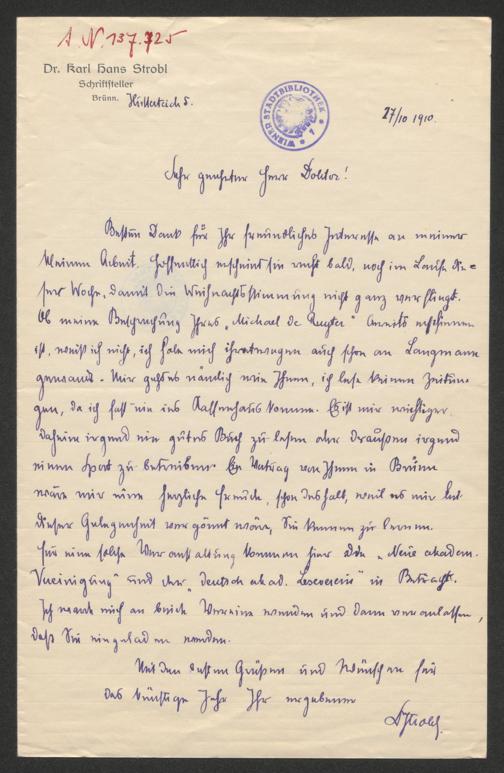 A.N. 137.725
Dr. Karl Hans Strobl
Schriftsteller
Brünn.
WIENER STADTBIBLIOTHEK
27/10 1910.
Sehr geehrter Herr Doktor!
Besten Dank für Ihr freundliches Interesse an meiner
kleinen Arbeit. Hoffentlich erscheint sie recht bald, noch im Laufe die=
ser Woche, damit die Weihnachtsstimmung nicht ganz verfliegt.
Ob meine Besprechung Ihres „Michael de Ruyter" bereits erschienen
ist, weiß ich nicht, ich habe mich ihretwegen auch schon an Langmann
gewandt. Mir geht es nämlich wie Ihnen, ich lese keinen Zeitun=
gen, da ich fast nie ins Kaffeehaus komme. Es ist mir wichtiger
daheim irgend ein gutes Buch zu lesen oder draußen irgend
einen Sport zu betreiben. Ein Vortrag von Ihnen in Brünn
wäre mir eine herzliche Freude, schon deshalb, weil es mir bei
dieser Gelegenheit vergönnt wäre, Sie kennen zu lernen.
Für eine solche Veranstaltung kommen hier die „Neue akadem.
Vereinigung" und der „deutsch akad. Leseverein" in Betracht.
Ich werde mich an beide Vereine wenden und dann veranlassen,
daß Sie eingeladen werden.
Mit den besten Grüßen und Wünschen für
das künftige Jahr Ihr ergebener
Strobl.